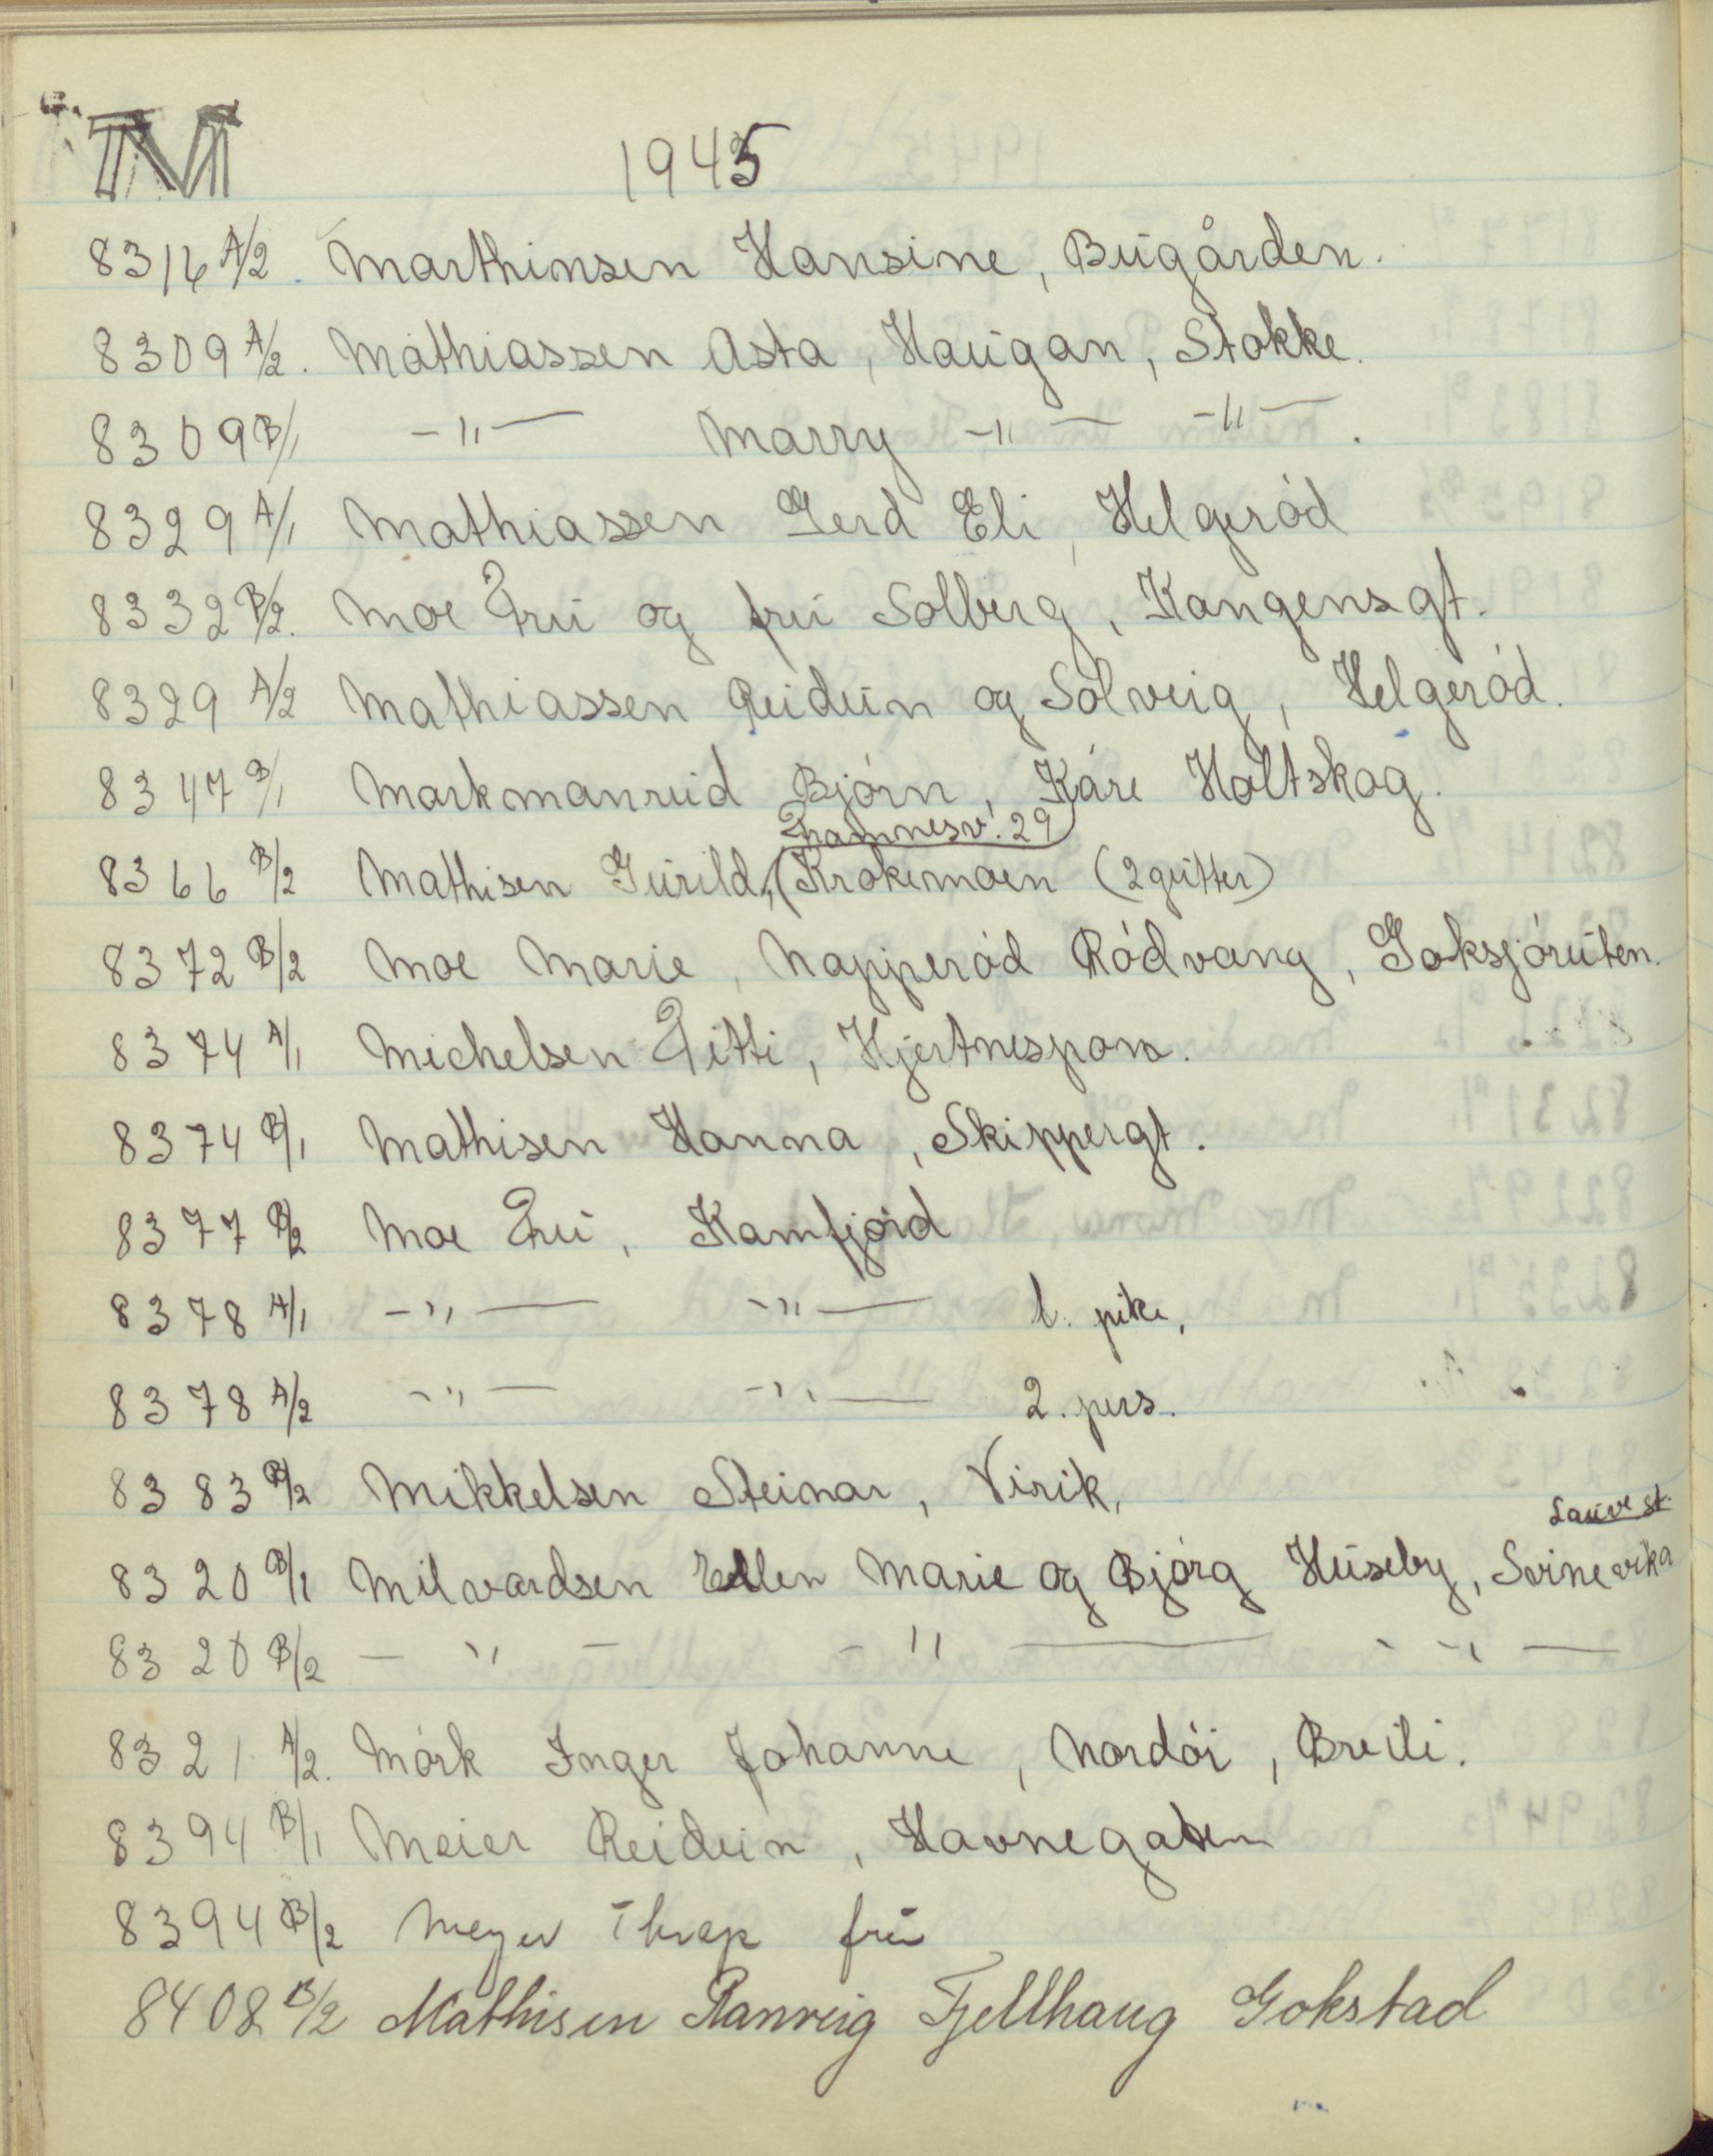 M 1945
8316 A/2. Marthinsen Hansine, Bugården.
8309 A/2. Mathiassen Asta, Haugan, Stokke.
8309 B/1 -"- Marry -"- -"-.
8329 A/1 Mathiassen Gerd Eli, Helgeród
8332 B/2. Moe Fru og fru Solberg, Kongensgt.
8329 A/2 Mathiassen Reidun og Solveig, Helgeród.
8347 B/1 Markmanrud Bjórn, Káre Holtskog.
Framnesv. 29
8366 B/2 Mathisen Gurild, (Krokemoen (2 gutter)
8372 B/2 Moe Marie, Napperód Ródvang, Goksjóruten.
8374 A/1 Michelsen Titti, Hjertnespom.
8374 B/1 Mathisen Hanna, Skippergt.
8377 B/2 Moe Fru, Kamfjord
8378 A/1 -"- -"- 1. pike,
8378 A/2 -"- -"- 2. pers.
8383 B/2 Mikkelsen Steinar, Virik,
Lauve st.
8320 B/1 Milvardsen Ellen Marie og Bjórg Huseby, Svinevika
8320 B/2 -"- -"- -"-
8321 A/2. Mórk Inger Johanne, Nordói, Breili.
8394 B/1 Meier Reidun, Havnegaten
8394 B/2 Meyer Thrap fru
8408 B/2 Mathisen Ranveig Fjellhaug Gokstad